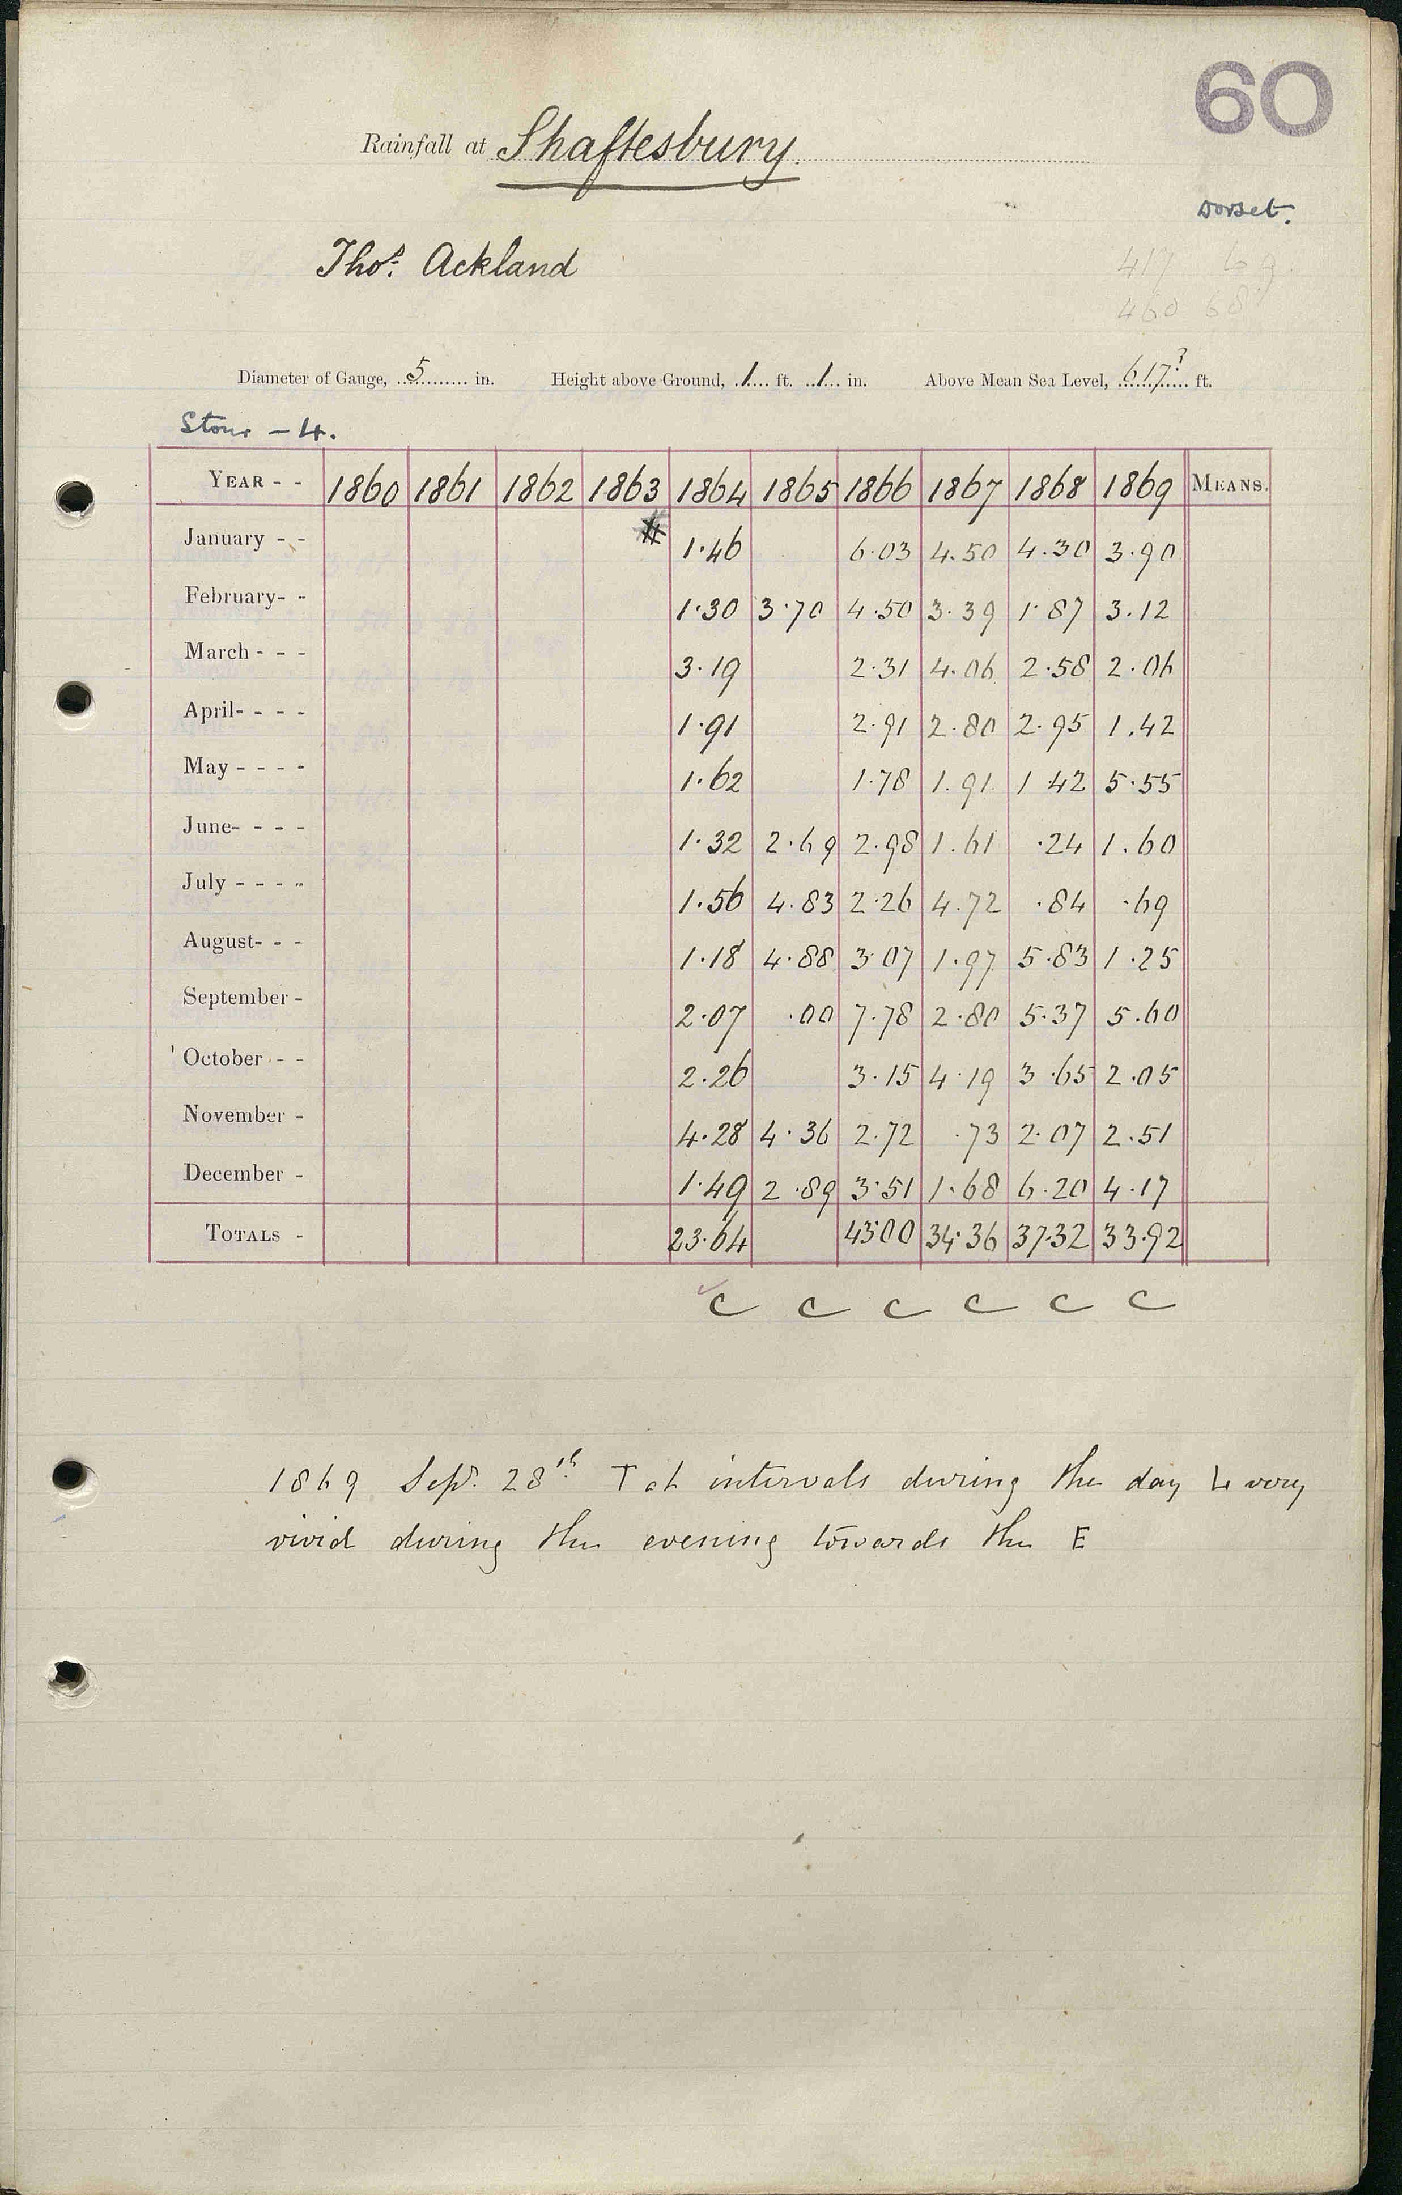 60
Rainfall at Shaftesbury.
Dorset.
Thos. Ackland
417 69
460 68
Diameter of Gauge, 5 in. Height above Ground, 1 ft. 1 in. Above Mean Sea Level, 617? ft.
Stour - 4.
YEAR - - 1860 1861 1862 1863 1864 1865 1866 1867 1868 1869 MEANS.
January - - # 1.46 6.03 4.50 4.30 3.90
February- - 1.30 3.70 4.50 3.39 1.87 3.12
March - - - 3.19 2.31 4.06 2.58 2.06
April- - - - 1.91 2.91 2.80 2.95 1.42
May - - - - 1.62 1.78 1.91 1 42 5.55
June- - - - 1.32 2.69 2.98 1.61 .24 1.60
July - - - - 1.56 4.83 2.26 4.72 .84 .69
August- - - 1.18 4.88 3.07 1.97 5.83 1.25
September - 2.07 .00 7.78 2.80 5.37 5.60
October - - 2.26 3.15 4.19 3.65 2.05
November - 4.28 4.36 2.72 .73 2.07 2.51
December - 1.49 2.89 3.51 1.68 6.20 4.17
TOTALS - 23.64 43.00 34.36 37.32 33.92
C C C C C C
1869 Sept. 28th. T at intervals during the day L very
vivid during the evening towards the E